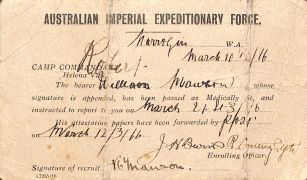 AUSTRALIAN IMPERIAL EXPEDITIONARY FORCE.
Narrogin W.A.
March 10th 1916
CAMP COMMANDANT
Helena Vale
The bearer William Mawson whose
signature is appended, has been passed as Medically fit, and
instructed to report to you on March
His attestation papers have been forwarded by post
on March 12/3/16
Enrolling Officer.
Signature of recruit W Mawson.